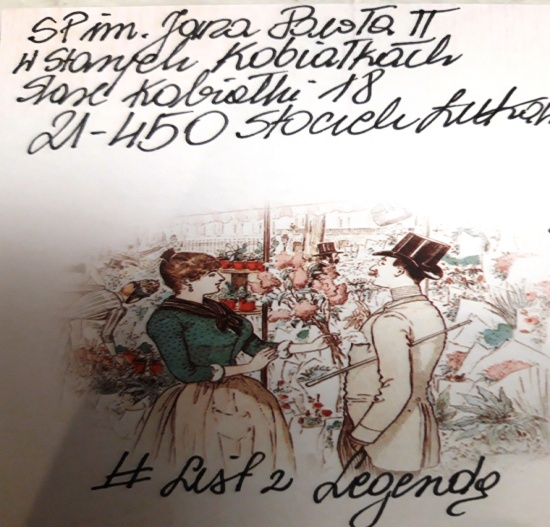 SP im. Jana Pawła II
w Starych Kobiałkach
Stare Kobiałki 18
21-450 Stoczek Łukow
# List z Legendą